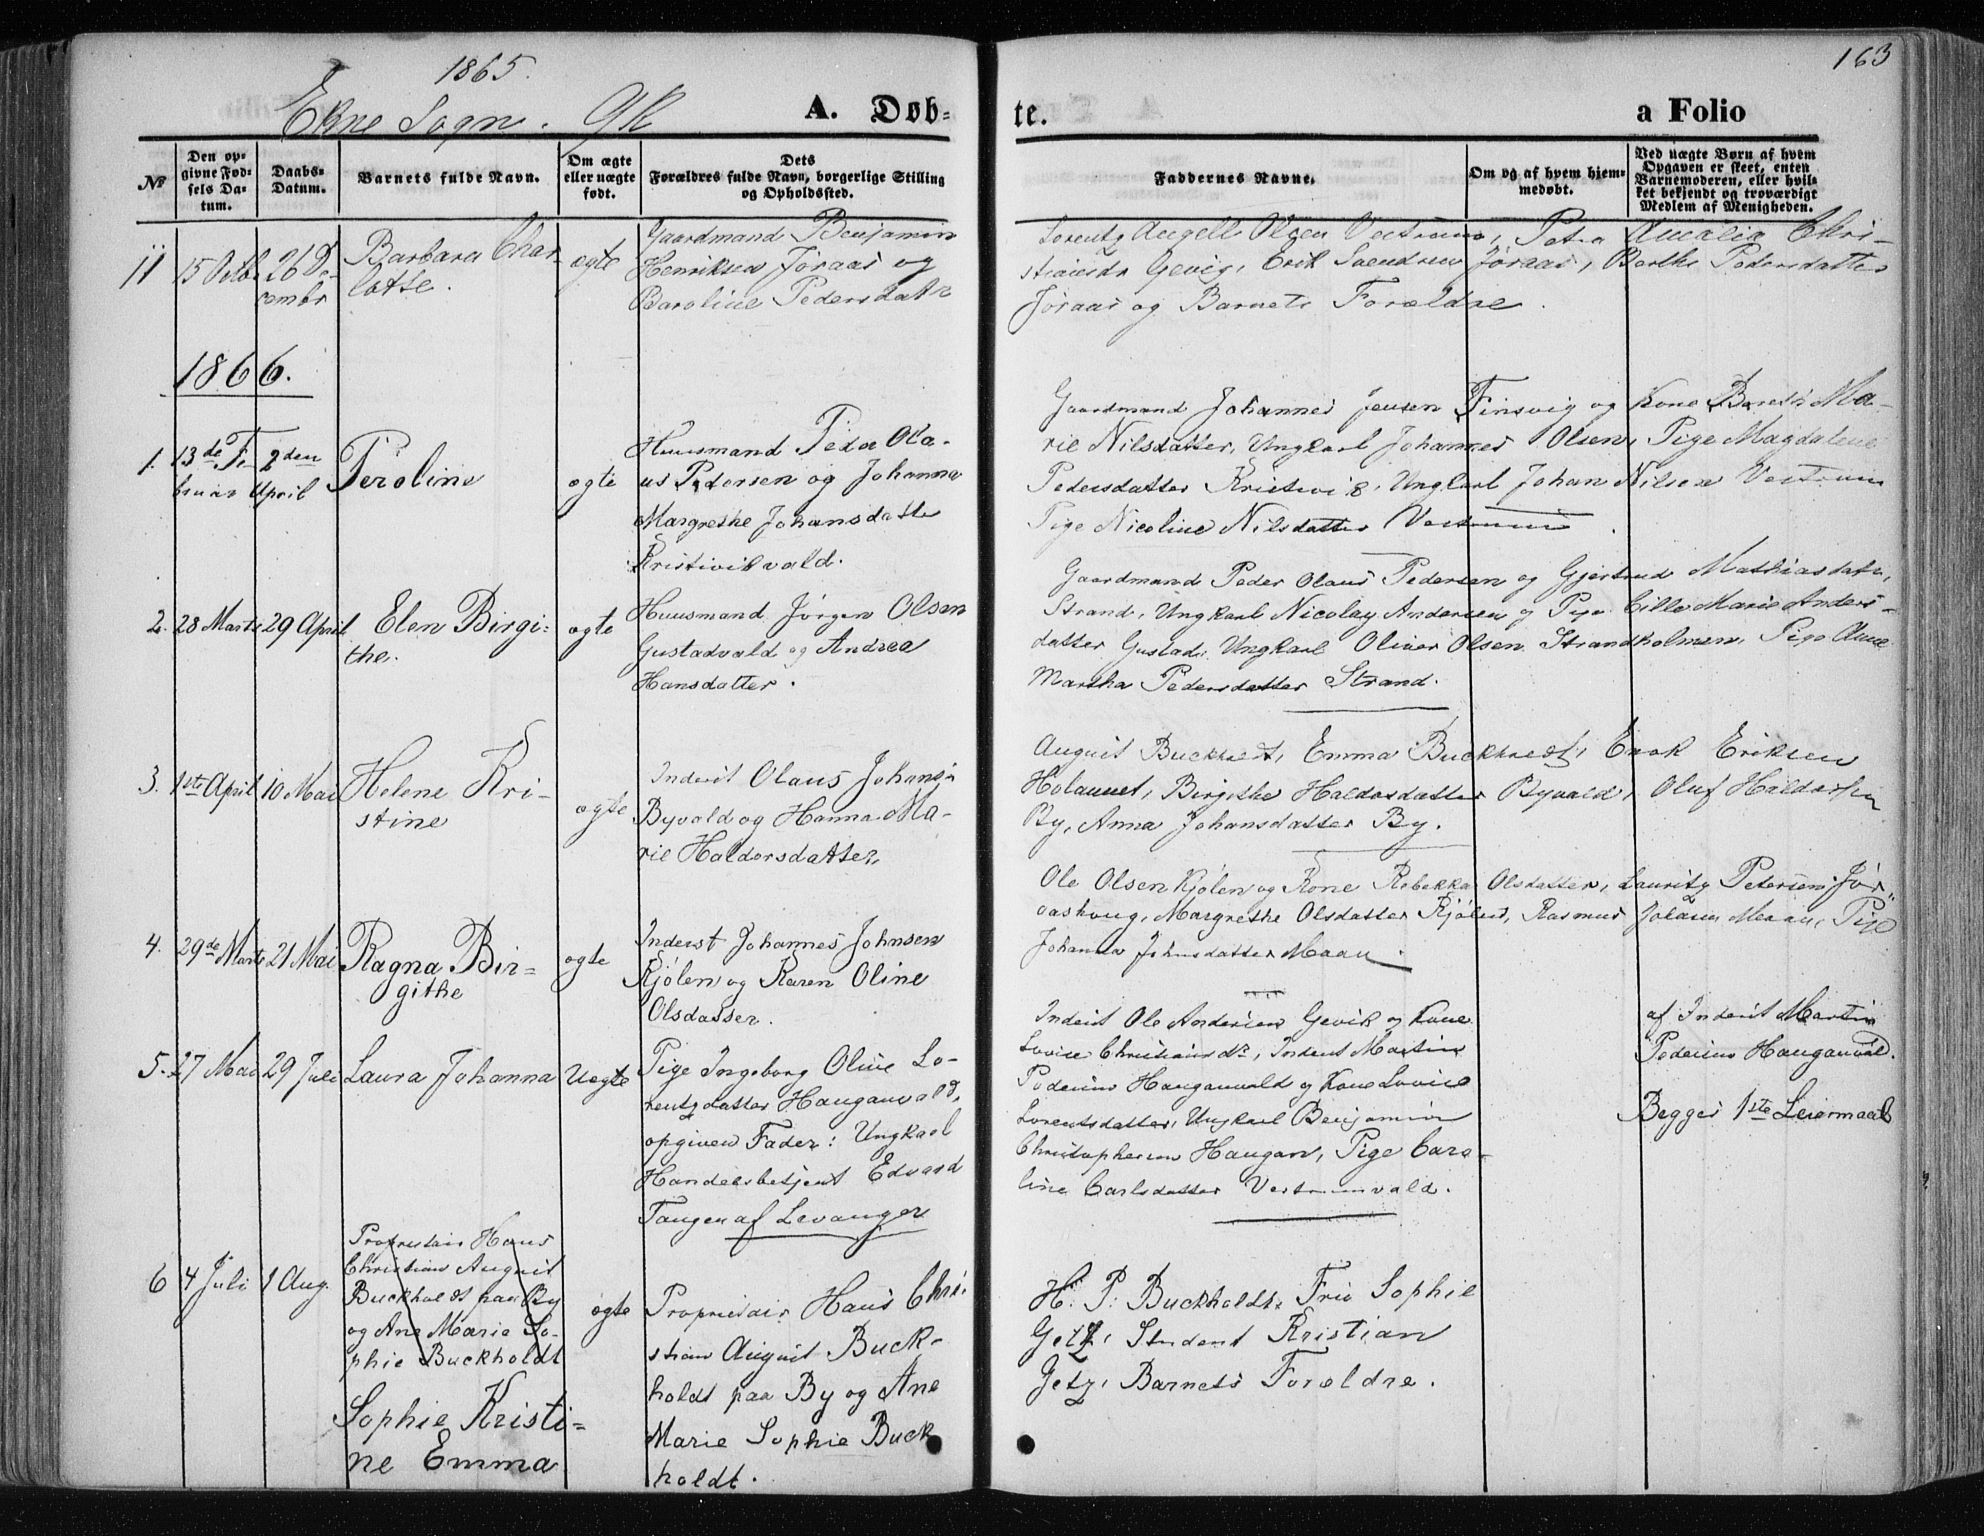 1865.
163
Ekne Sogn.
A. Døb-
te.
a Folio
No
Den op-
givne Fød-
sels Da-
tum.
Daabs-
Datum.
Barnets fulde Navn.
Om ægte
eller uægte
født.
Dets
Forældres fulde Navn, borgerlige Stilling
og Opholdssted.
Faddernes Navne.
Om og af hvem hjem-
medøbt.
Ved uægte Børn af hvem
Opgaven er skeet, enten
Barnemoderen, eller hvil-
ket bekjendt og troværdigt
Medlem af Menigheden.
11
15 Octb.
26 De-
cembr
Barbara Char-
lotte.
ægte
Gaardmand Benjamin
Henriksen Joraas og
Baroline Pedersdatr
Lorentz Angell Olsen Vestrum, Petra Amalia Chri-
stiansdr Gevig, Erik Svendsen Joraas, Berthe Pedersdatter
Joraas og Barnets Forældre.
1866.
1.
13de Fe-
bruar
2den
April
Peroline
ægte
Huusmand Peder Ola-
us Pedersen og Johanna
Margrethe Johansdatter
Kristivikvald.
Gaardmand Johannes Jensen Finsvig og Kone Bereth Ma-
rie Nilsdatter, Ungkarl Johannes Olsen, Pige Magdalene
Pedersdatter Kristivig, Ungkarl Johan Nilsen Vestrum
Pige Nicoline Nilsdatter Vestrum.
2.
28 Marts
29 April
Elen Birgi-
the.
ægte
Huusmand Jørgen Olsen
Gustadvald og Andrea
Hansdatter.
Gaardmand Peder Olaus Pedersen og Gjertrud Mathiasdatr,
Strand, Ungkarl Nicolay Andersen og Pige Cille Marie Anders-
datter Gustad, Ungkarl Oliver Olsen Strandholmen, Pige Anne
Martha Pedersdatter Strand.
3.
1ste April
10 Mai
Helene Kri-
stine
ægte
Inderst Olaus Johans.
Byvald og Hanna Ma-
rie Haldorsdatter
August Buckholdt, Emma Buckholdt, Enok Eriksen
Holaunet, Birgithe Haldorsdatter Byvald, Oluf Haldorsen
By, Anna Johansdatter By.
4.
29de Marts
21 Mai
Ragna Bir-
githe
ægte
Inderst Johannes Johnsen
Kjølen og Karen Oline
Olsdatter.
Ole Olsen Kjølen og Kone Rebekka Olsdatter, Lauritz Petersen Jør-
aashaug, Margrethe Olsdatter Kjølen, Rasmus Johan Maan, Pige
Johanna Johnsdatter Maan.
5.
27 Mai
29 Juli
Laura Johanna
Uægte
Pige Ingeborg Oline Lo-
rentzdatter Hauganvald,
opgiven Fader: Ungkarl
Handelsbetjent Edvard
Tangen af Levanger
Inderst Ole Andersen Gevik og Kone
Lovise Christiansdr, Inderst Martin
Pedersen Hauganvald og Kone Lovise
Lorentsdatter, Ungkarl Benjamin
Christophersen Haugan, Pige Caro-
line Carlsdatter Vestrumvald.
af Inderst Martin
Pedersen Hauganvald.
Begges 1ste Leiermaal
6
4 Juli
1 Aug.
Proprietair Hans
Christian August
Buckholdt paa By
og Ane Marie So-
phie Buckholdt
Sophie Kristi-
ne Emma
ægte
Proprietair Hans Chri-
stian August Buck-
holdt paa By og Ane
Marie Sophie Buck
holdt.
H. P. Buckholdt, Frø Sophie
Getz, Student Kristian
Getz, Barnets Forældre.